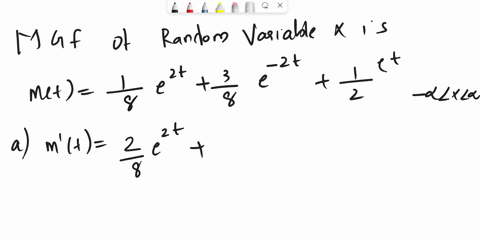 MGf of Random Variable x is
m(t) = 1/8 e^2t + 3/8 e^-2t + 1/2 e^t -α<x<α
a) m'(t) = 2/8 e^2t +